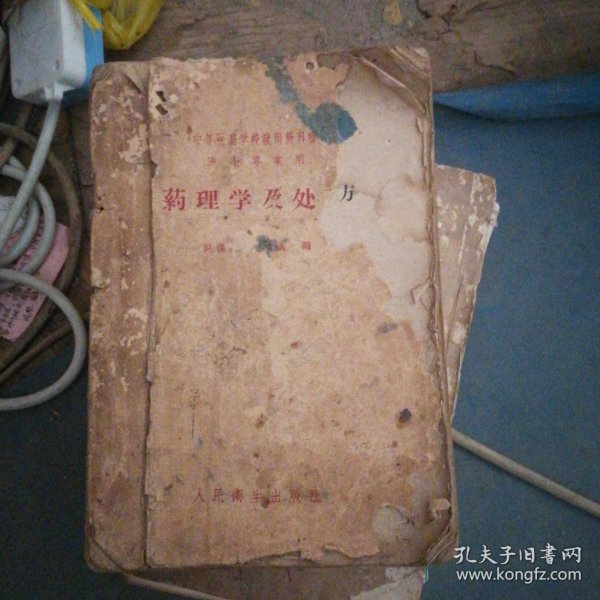 中等医药学校试用教科书
医士专业用
药理学及处方
编
人民衛生出版社
孔夫子旧书网
www.kongfz.com